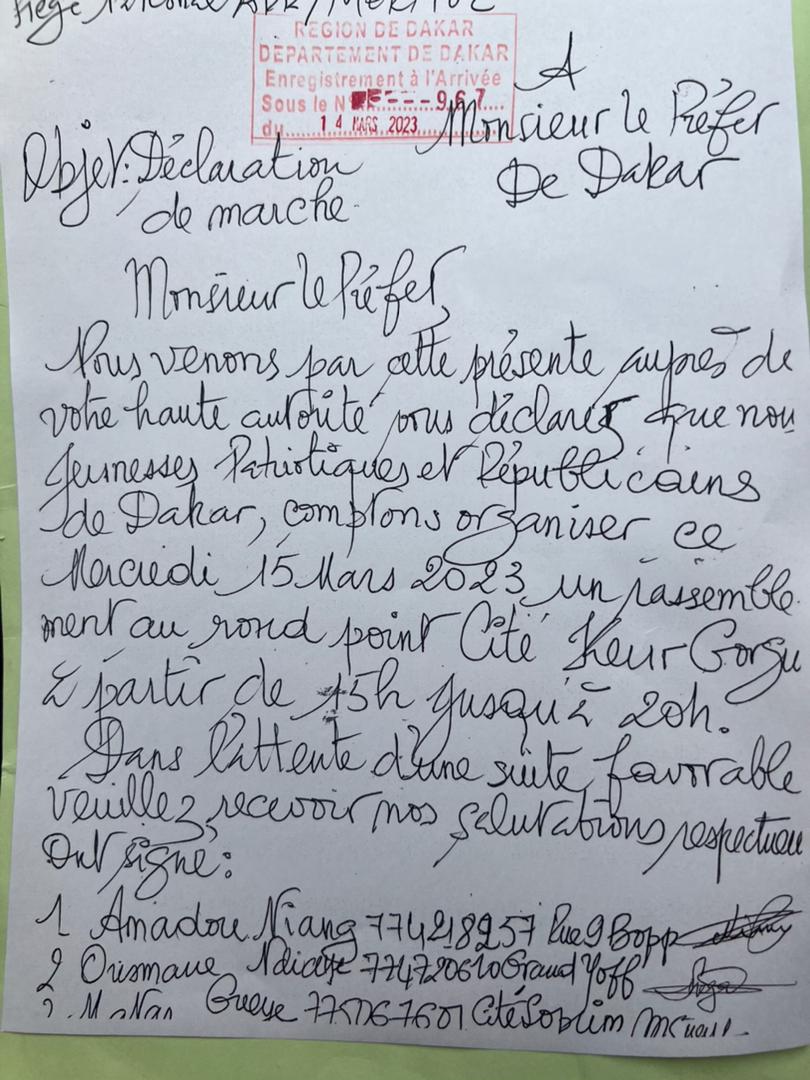 REGION DE DAKAR
DEPARTEMENT DE DAKAR
Enregistrement à l'Arrivée
Sous le N° ----967
du 14 MARS 2023
A
Monsieur le Préfer
De Dakar
Objet: Déclaration
de marche.
Monsieur le Préfer,
Nous venons par cette présente auprès de
votre haute autorité vous déclarez que nou
Jeunesses Patriotiques et Républicains
de Dakar, comptons organiser ce
Mercredi 15 Mars 2023 un rassemble
ment au rond point Cité Keur Gorgu
à partir de 15h jusqu'à 20h.
Dans l'attente d'une suite favorable
veuillez recevoir nos salutations respectueu
Ont signé:
1 Amadou Niang 774218257 Rue 9 Bopp
2 Ousmane Ndiaye 774720610 Grand Yoff
Gueye Cité Soprim